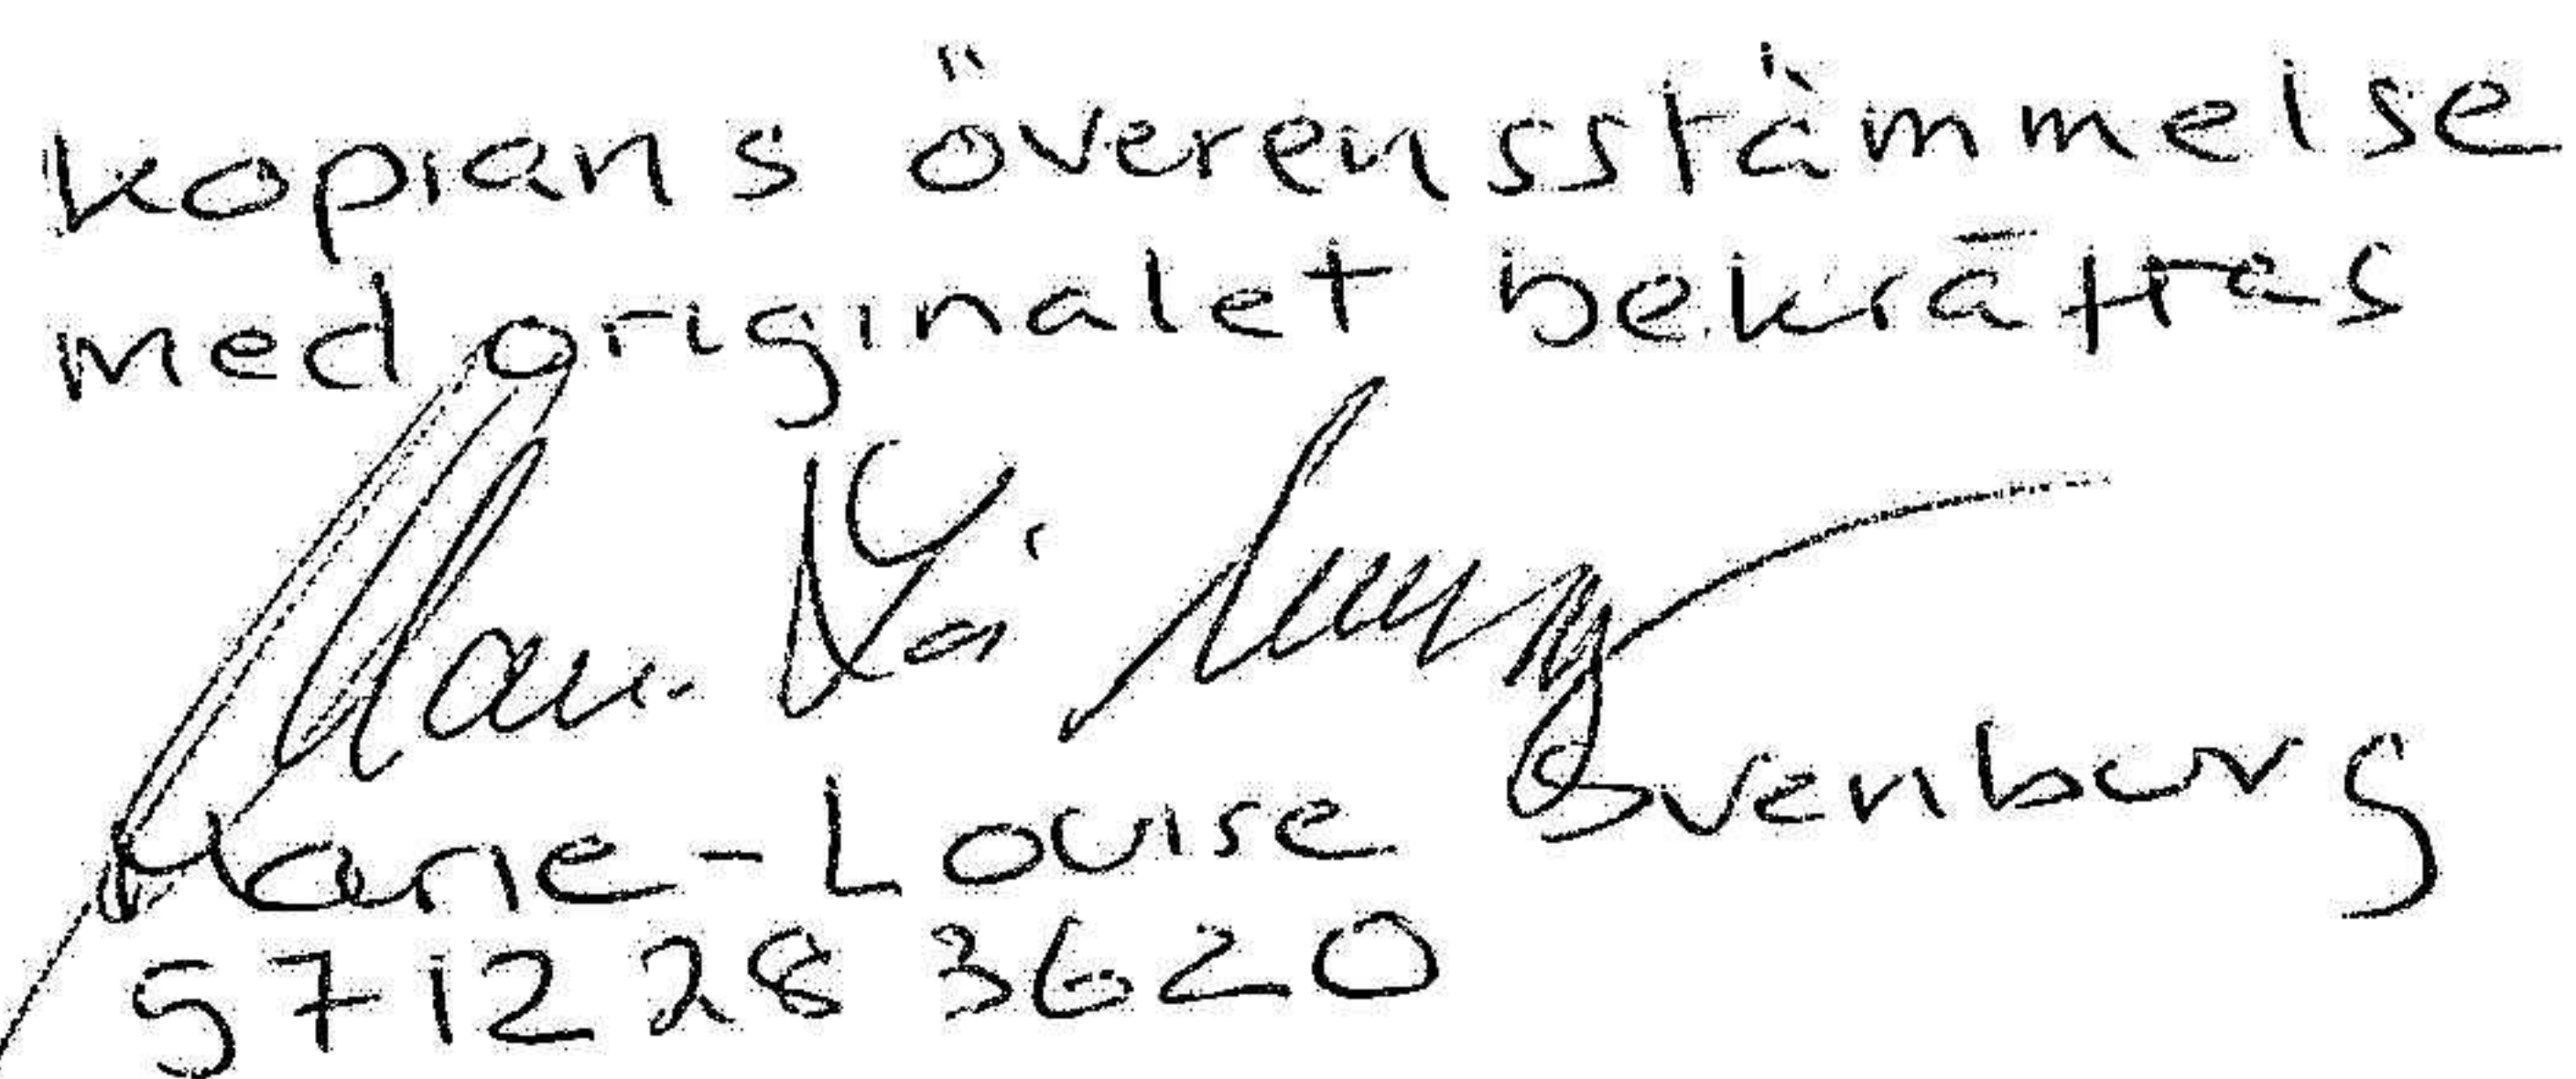 kopians överensstämmelse
med originalet bekräftas
Marie-Louise Svenburg
571228 3620